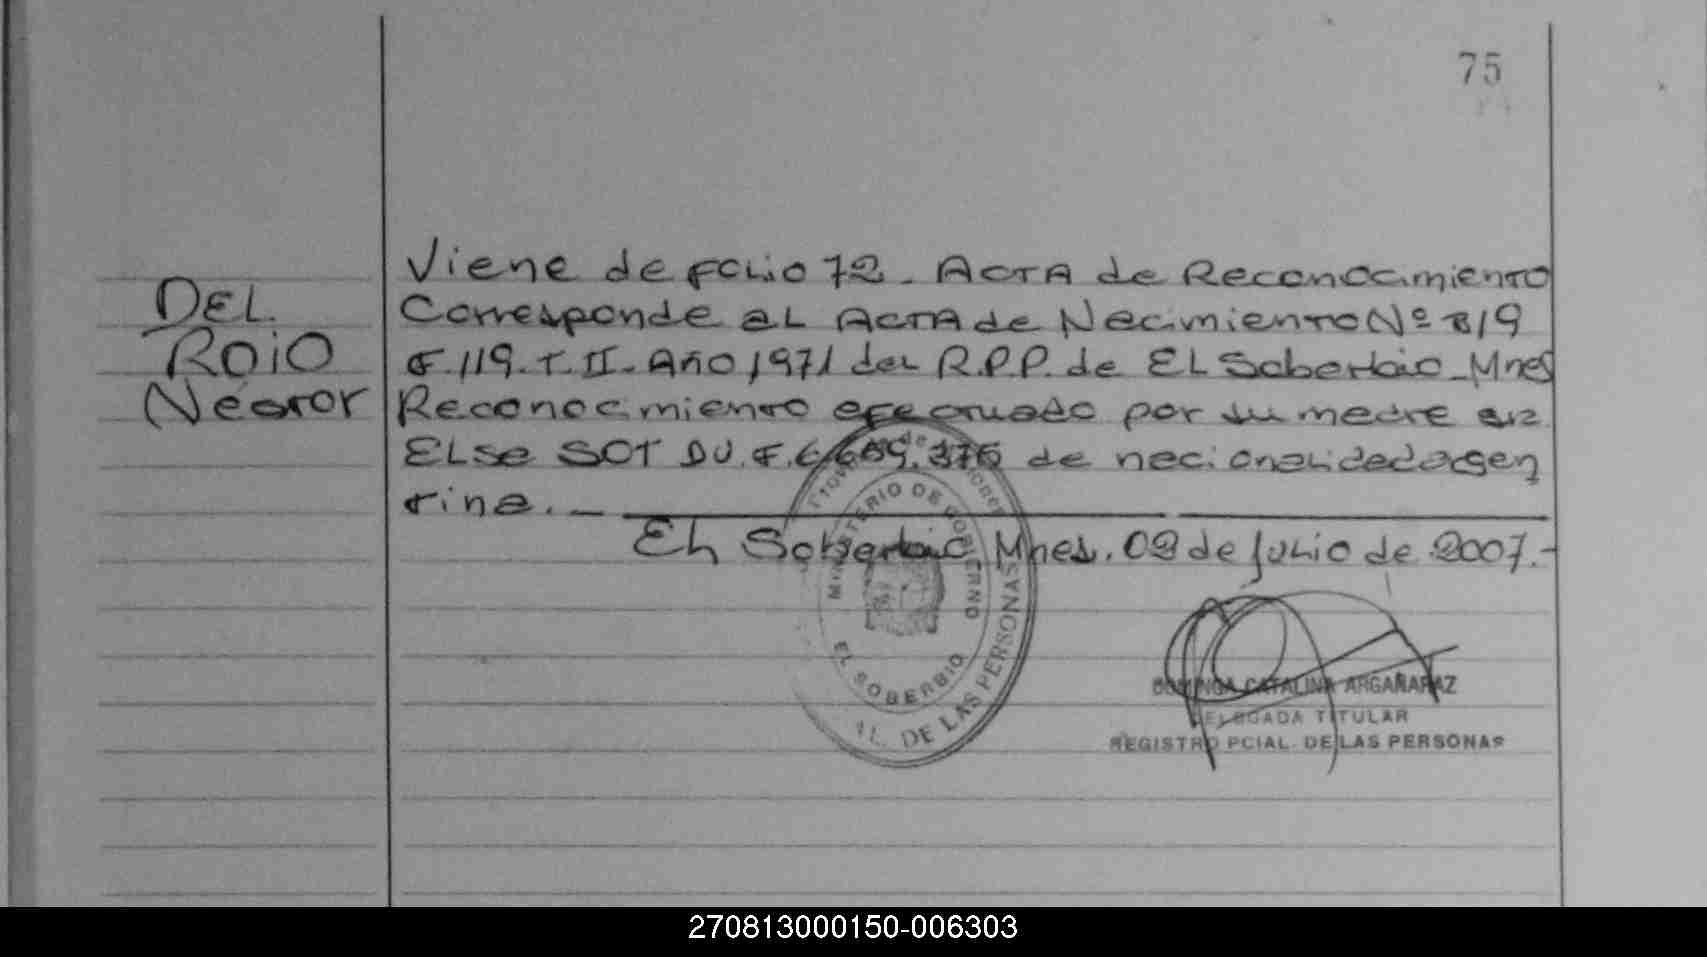 75
DEL
ROJO
Néstor
Viene de Folio 72. ACTA de Reconocimiento
Corresponde al ACTA de Nacimiento Nº 819
F. 119. T. II. Año 1971 del R.P.P. de El Soberbio Mnes
Reconocimiento efectuado por su madre
Elsa SOT DU. F. 6.669.376 de nacionalidad argen
tina. _
El Soberbio Mnes. 02 de Julio de 2007.-
MINISTERIO DE GOBIERNO
EL SOBERBIO
DE LAS PERSONAS
DOMINGA CATALINA ARGAÑARAZ
DELEGADA TITULAR
REGISTRO PCIAL. DE LAS PERSONAS
270813000150-006303